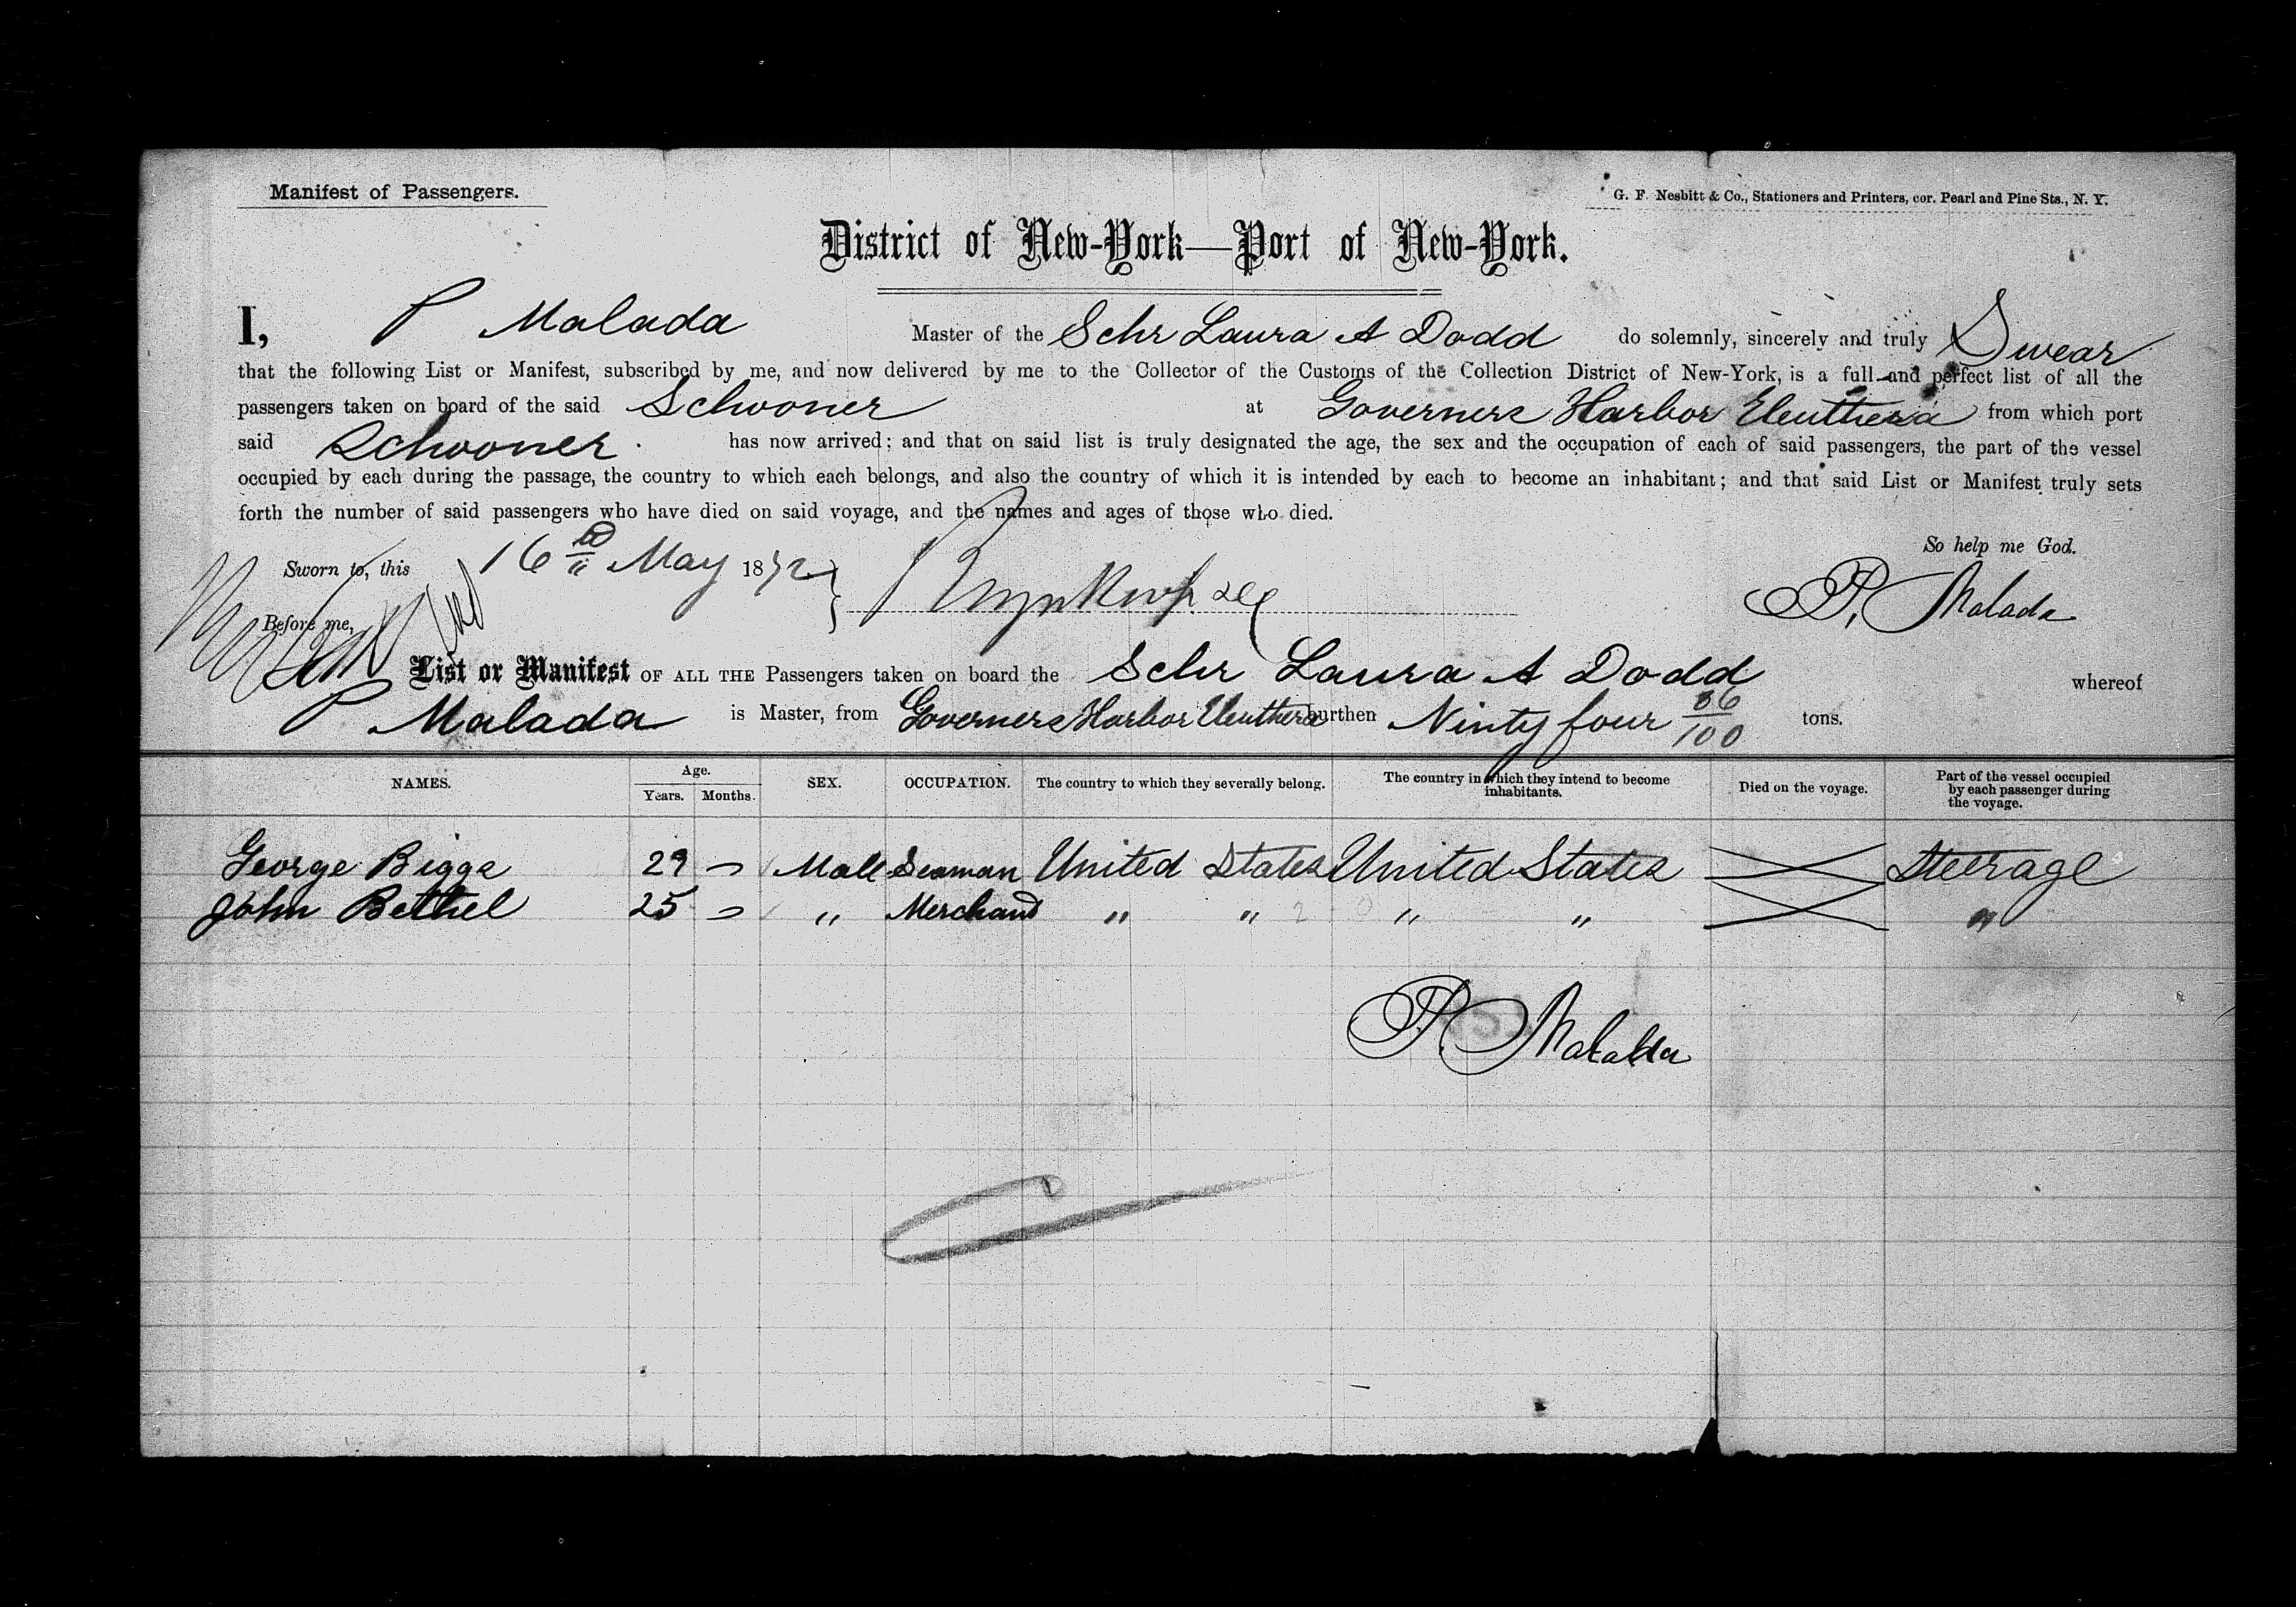 Manifest of Passengers.
G. F. Nesbitt & Co., Stationers and Printers, cor. Pearl and Pine Sts., N. Y.
District of New-York—Port of New-York.
I, P Malada Master of the Schr Laura A Dodd do solemnly, sincerely and truly Swear
that the following List or Manifest, subscribed by me, and now delivered by me to the Collector of the Customs of the Collection District of New-York, is a full and perfect list of all the
passengers taken on board of the said Schooner at Governers Harbor Eleuthera from which port
said Schooner has now arrived; and that on said list is truly designated the age, the sex and the occupation of each of said passengers, the part of the vessel
occupied by each during the passage, the country to which each belongs, and also the country of which it is intended by each to become an inhabitant; and that said List or Manifest truly sets
forth the number of said passengers who have died on said voyage, and the names and ages of those who died.
So help me God.
Sworn to, this 16th May 1872
P. Malada
Before me,
List or Manifest OF ALL THE Passengers taken on board the Schr Laura A Dodd whereof
P Malada is Master, from Governers Harbor Eleuthera burthen Ninty four 86/100 tons.
NAMES. Age. Years. Months. SEX. OCCUPATION. The country to which they severally belong. The country in which they intend to become inhabitants. Died on the voyage. Part of the vessel occupied by each passenger during the voyage.
George Biggs 29 Male Seaman United States United States Steerage
John Bethel 25 " Merchant " " " " "
P. Malada